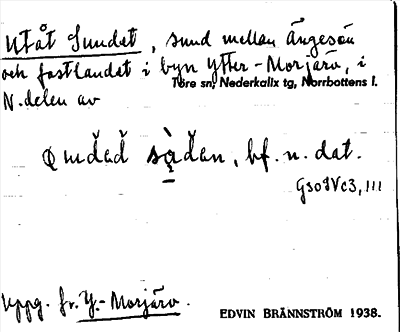 Utåt Sundet, sund mellan Ängesön
och fastlandet i byn Ytter-Morjärv, i
Töre sn, Nederkalix tg, Norrbottens l.
N.delen av
bf. n. dat.
GsoIVc3, III
Uppg. fr. Y.-Morjärv.
EDVIN BRÄNNSTRÖM 1938.